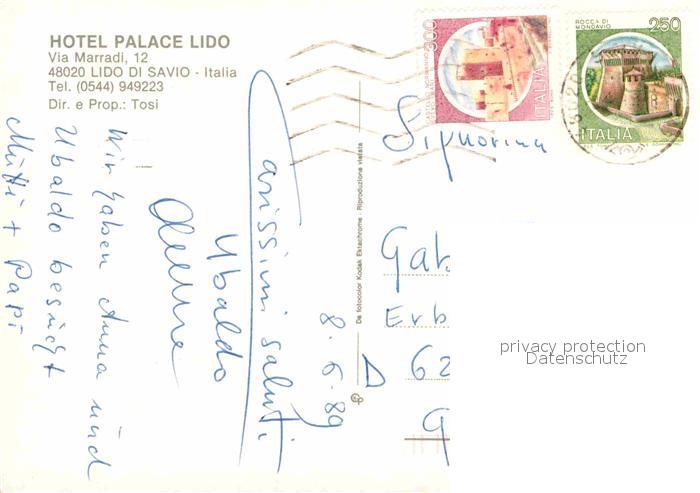 HOTEL PALACE LIDO
Via Marradi, 12
48020 LIDO DI SAVIO - Italia
Tel. (0544) 949223
Dir. e Prop.: Tosi
300
ITALIA
ROCCA DI
MONDAVIO
250
ITALIA
Signorina
Gab
Erb
D 62
G
De fotocolor Kodak Ektachrome - Riproduzione vietata
8.6.89
Carissimi saluti
Ubaldo
Wir haben Anna und
Ubaldo besucht
Mutti + Papi
privacy protection
Datenschutz